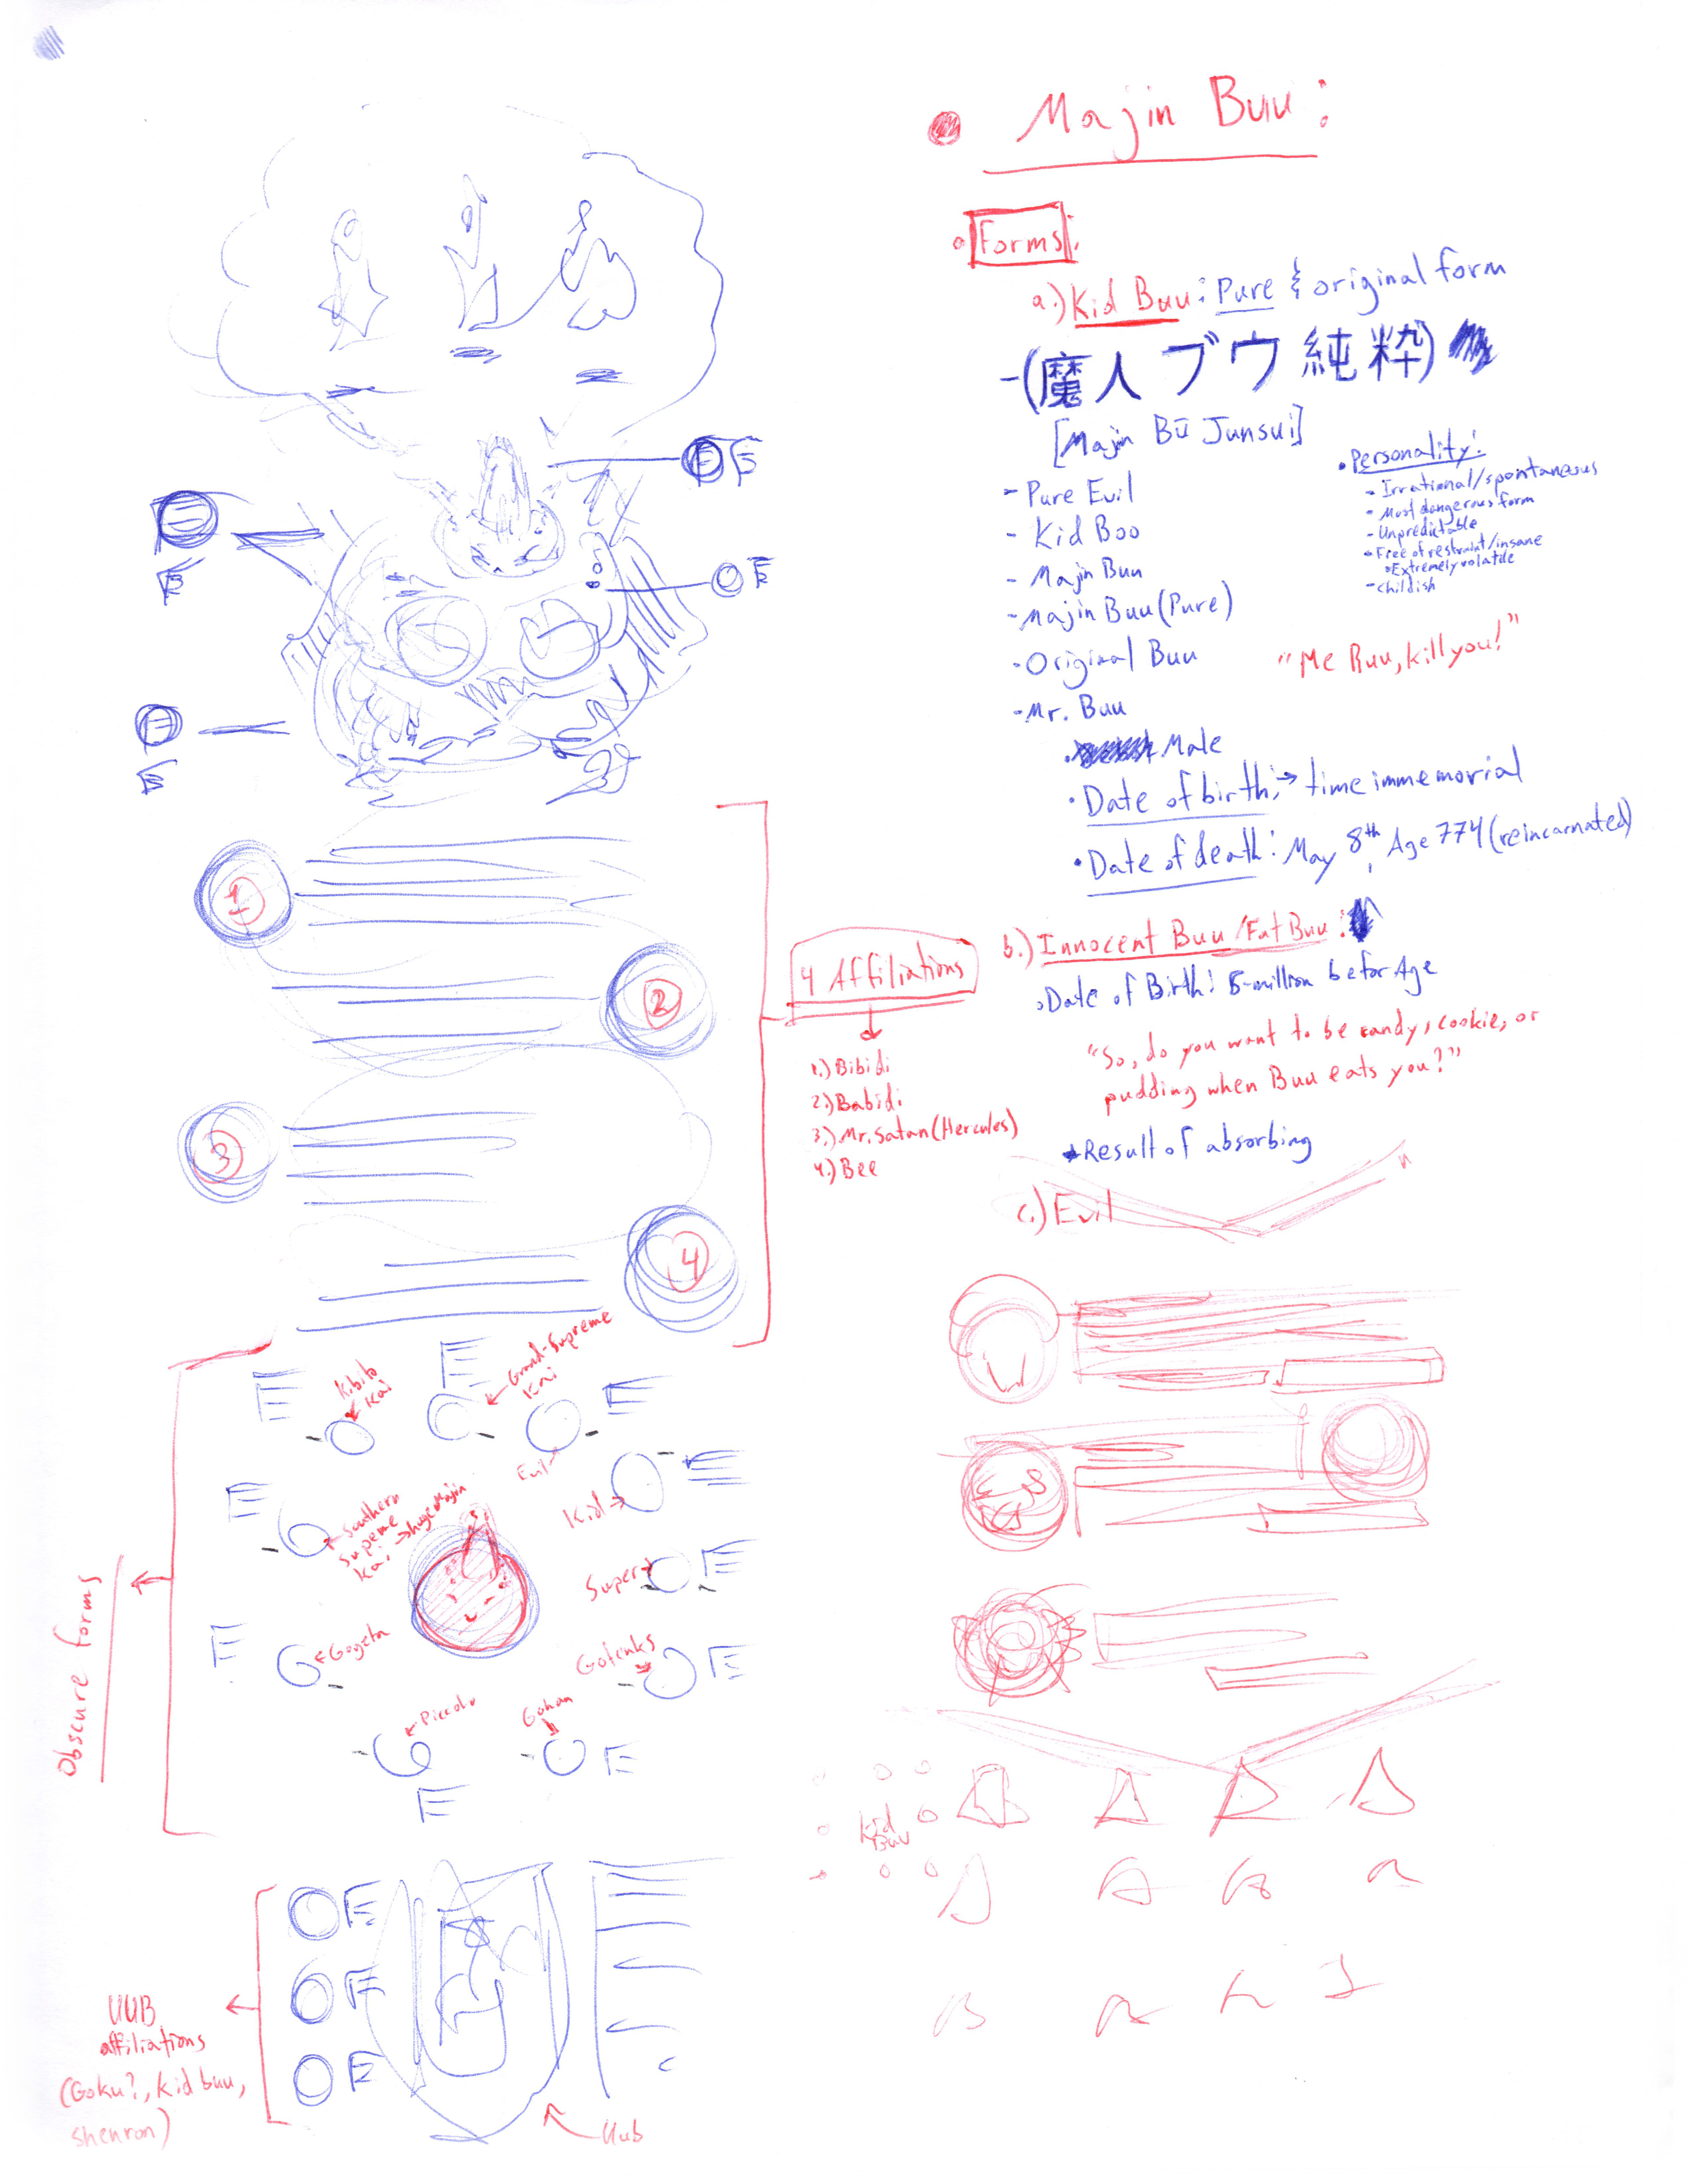 Majin Buu:
Forms:
a.) Kid Buu: Pure & original form
-(魔人ブウ純粋)
[Majin Bū Junsui]
- Pure Evil
- Kid Boo
- Majin Buu
- Majin Buu (Pure)
- Original Buu
- Mr. Buu
• Male
• Date of birth: → time immemorial
• Date of death: May 8th, Age 774 (reincarnated)
• Personality:
- Irrational/spontaneous
- Most dangerous form
- Unpredictable
- Free of restraint/insane
Extremely volatile
- Childish
"Me Buu, kill you!"
b.) Innocent Buu/Fat Buu:
Date of Birth: 5-million befor Age
"So, do you want to be candy, cookie, or
pudding when Buu eats you?"
Result of absorbing
c.) Evil
1
2
3
4
4 Affiliations
1.) Bibidi
2.) Babidi
3.) Mr. Satan (Hercules)
4.) Bee
Obscure forms
Kibito
Kai
Grand-Supreme
Kai
Evil
Kid
Super
Gotenks
Gohan
Piccolo
Gogeta
Southern
Supreme
Kai
→ huge Majin
Kid
Buu
UUB
affiliations
(Goku?, kid buu,
shenron)
Uub